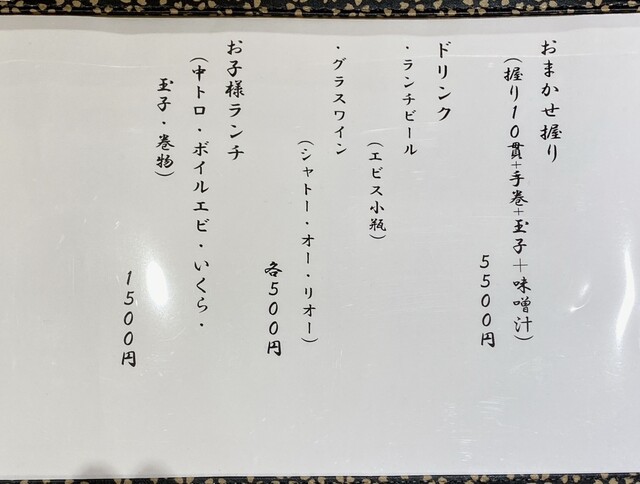 おまかせ握り
(握り10貫+手巻+玉子+味噌汁)
5500円
ドリンク
・ランチビール
(エビス小瓶)
・グラスワイン
(シャトー・オー・リオー)
各500円
お子様ランチ
(中トロ・ボイルエビ・いくら・
玉子・巻物)
1500円